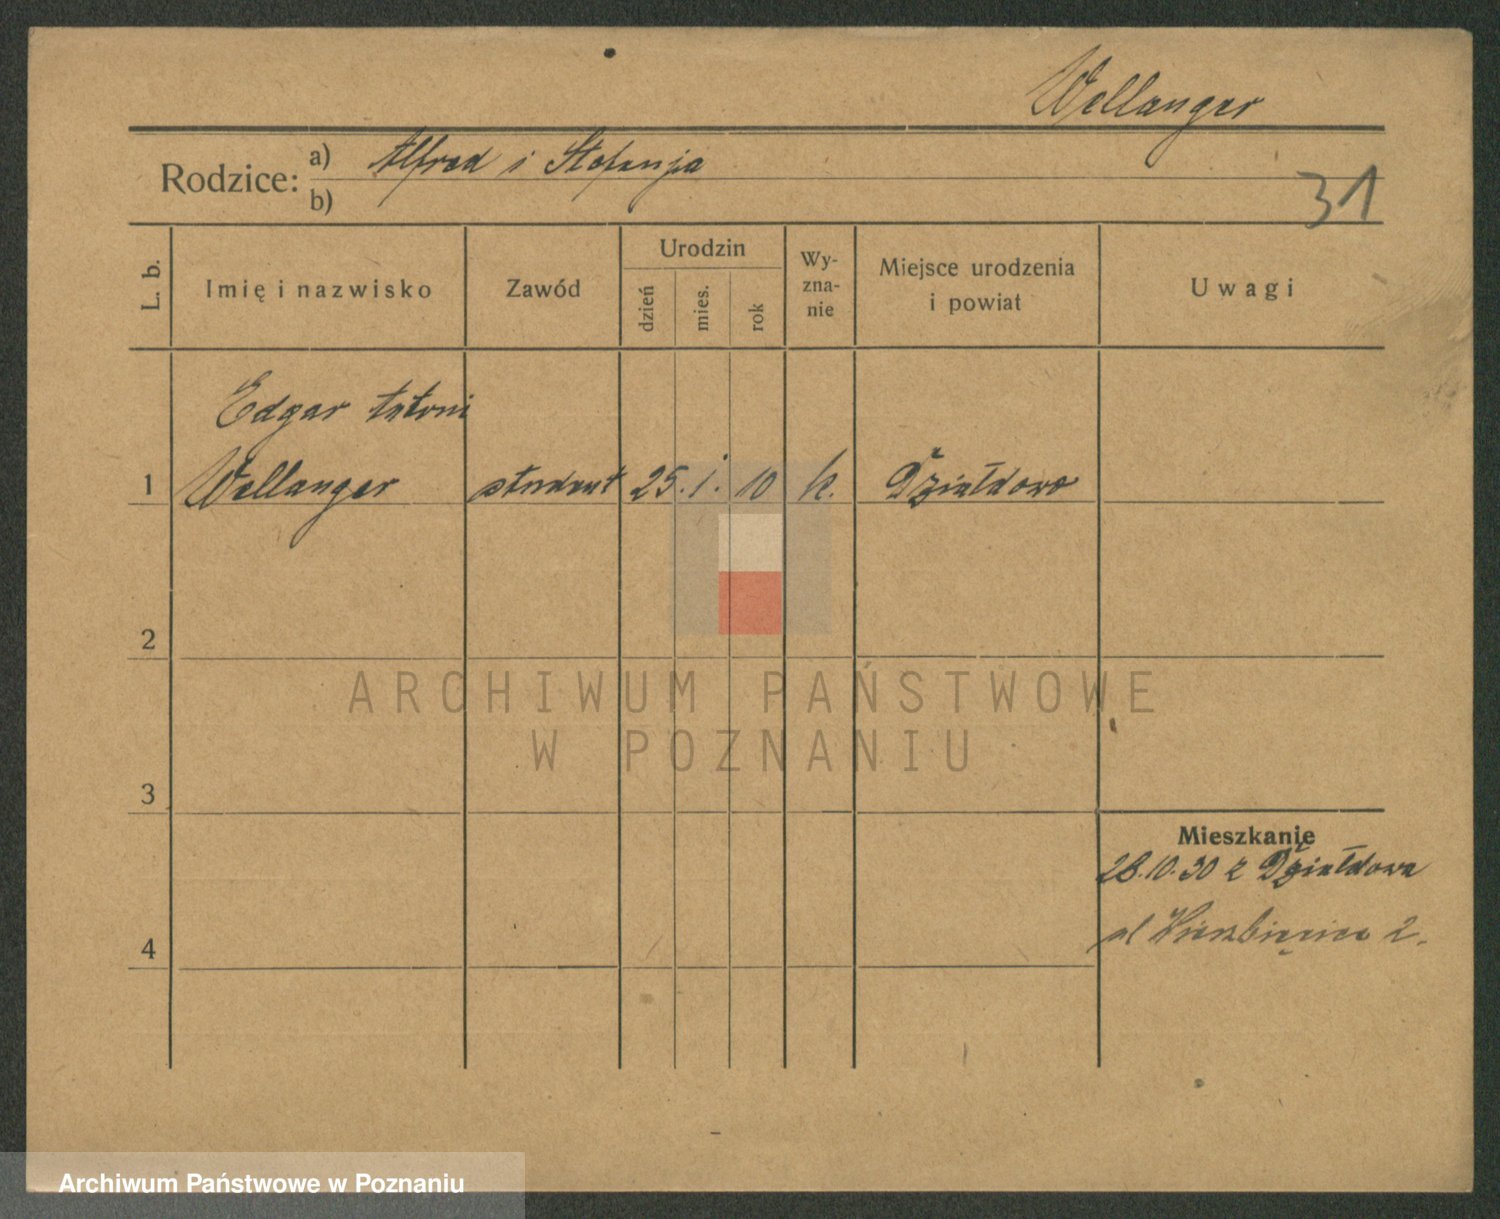 Wellanger
Rodzice:
a) Alfred i Stefanja
b)
31
L. b.
Imię i nazwisko
Zawód
Urodzin
dzień
mies.
rok
Wy-
zna-
nie
Miejsce urodzenia
i powiat
Uwagi
Edgar
1 Wellanger student 25. 1. 10 k. Działdowo
2
3
4
Mieszkanie
28.10.30 z Działdowa
ul 2.
ARCHIWUM PAŃSTWOWE
W POZNANIU
Archiwum Państwowe w Poznaniu